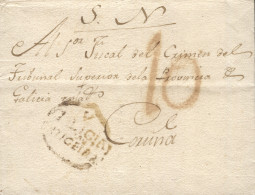 S. N
Al Sor Fiscal del Crimen del
Tribunal Superior de la Provincia de
Galicia
10
Coruña